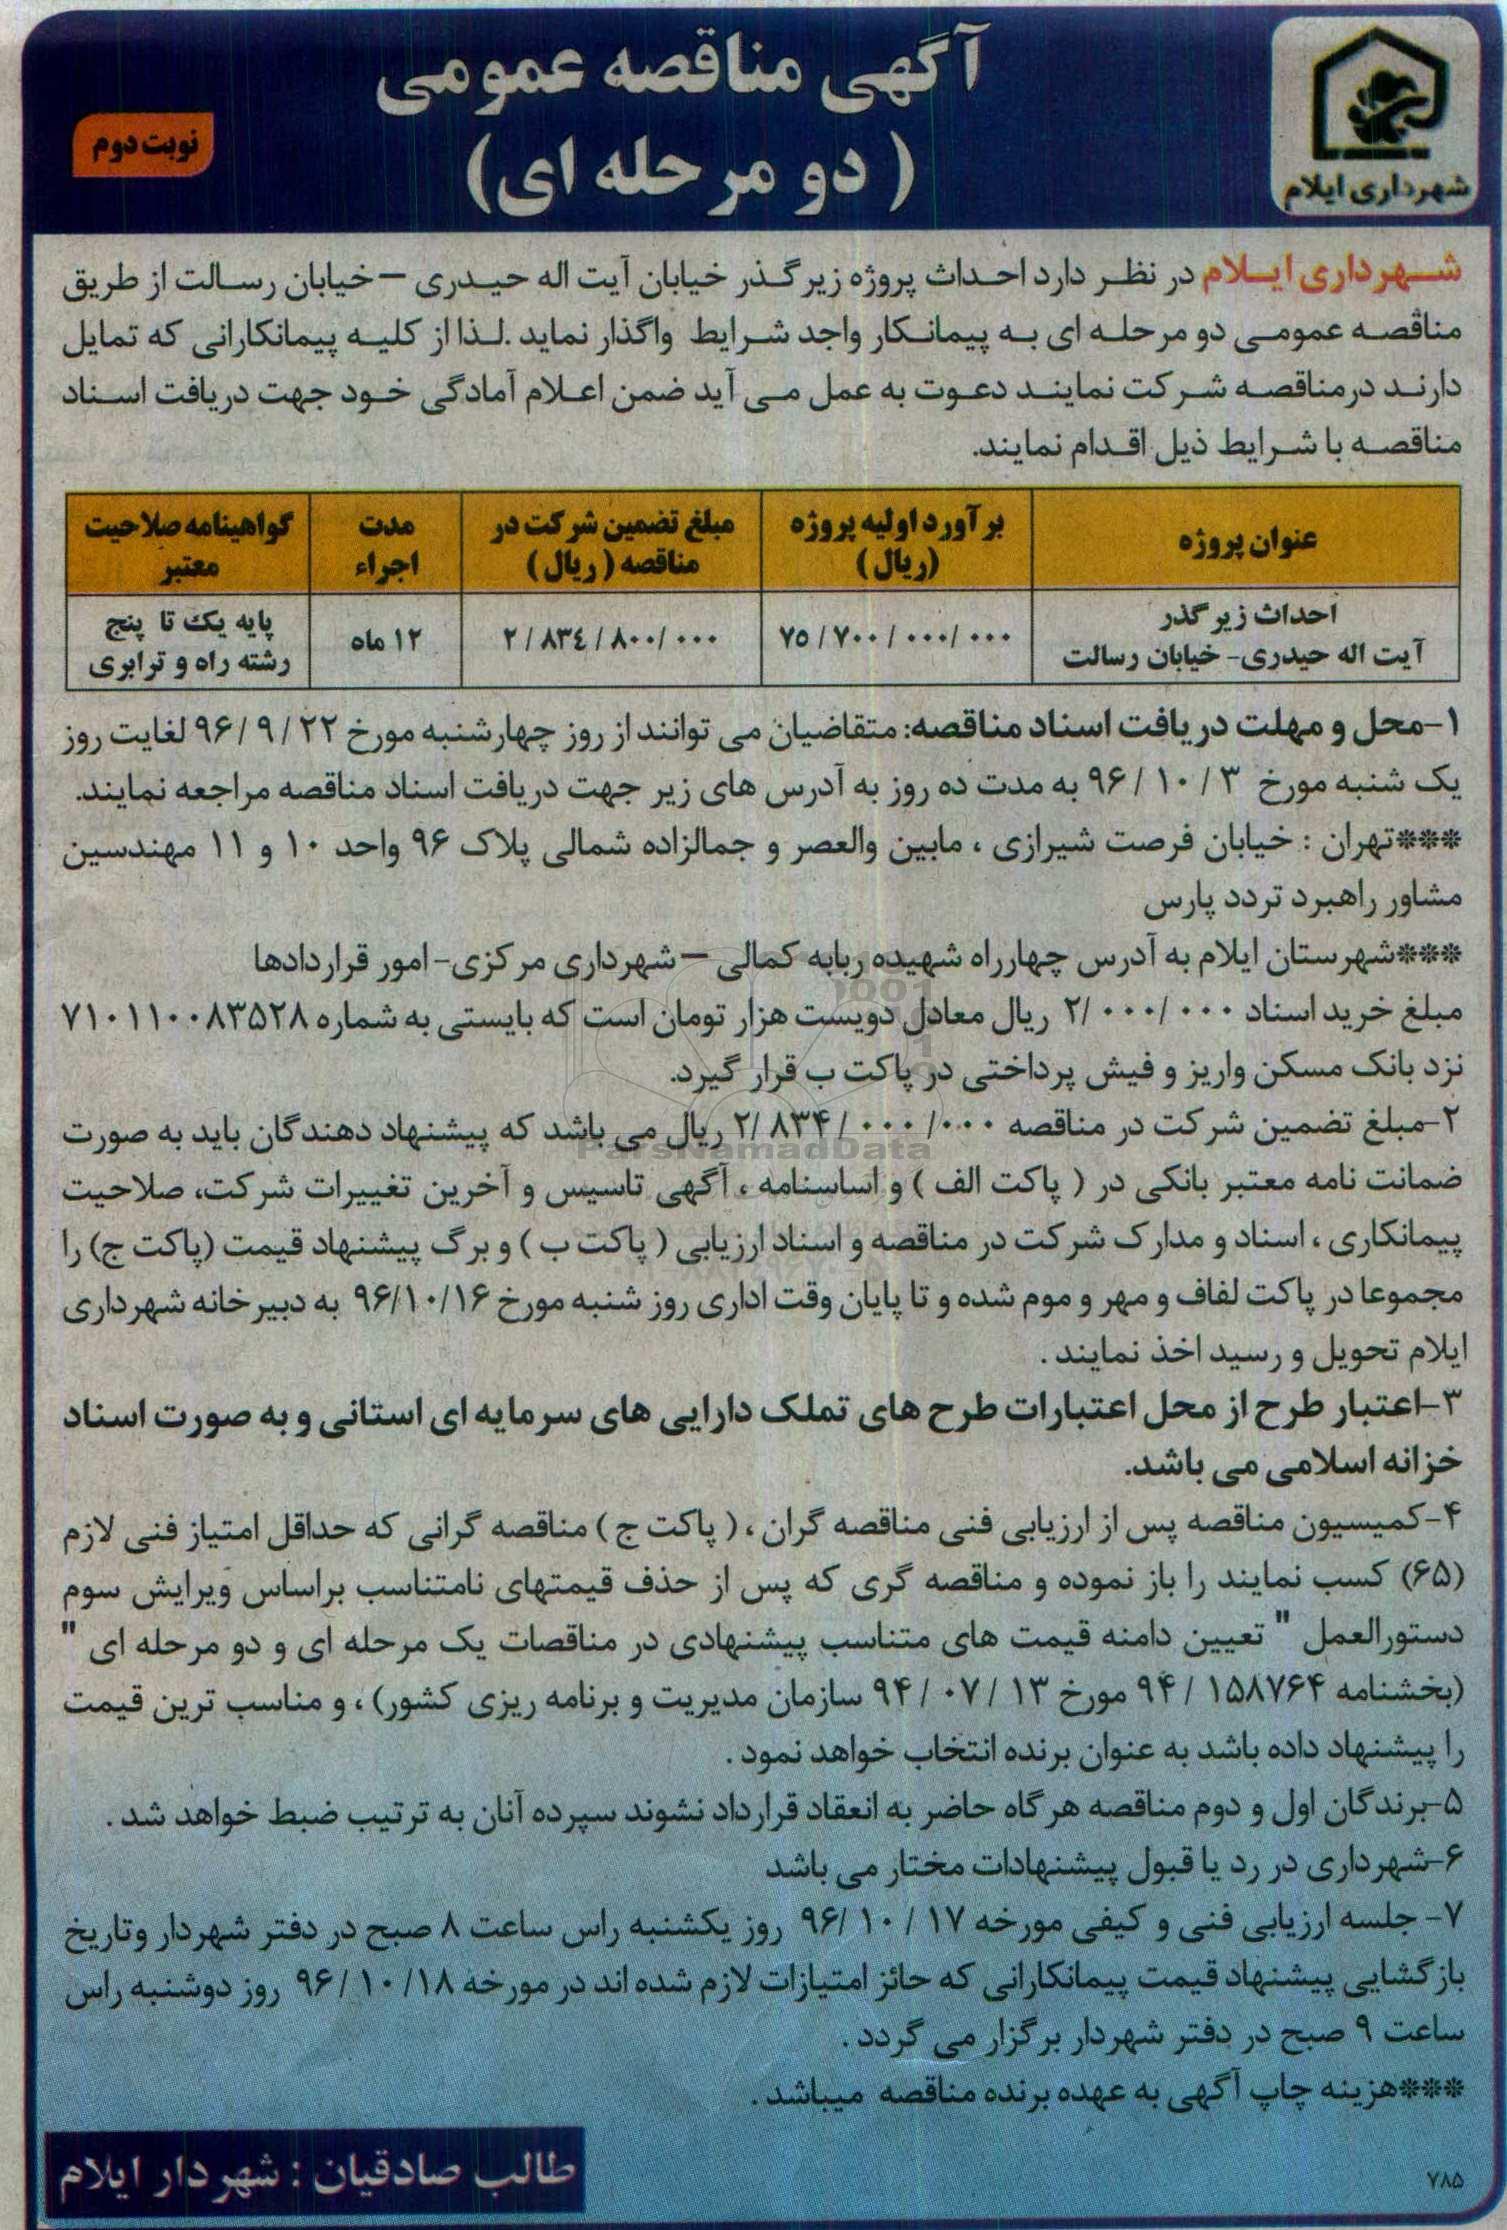 آگهی مناقصه عمومی
( دو مرحله ای)
نوبت دوم
شهرداری ایلام
شهرداری ایلام در نظر دارد احداث پروژه زیرگذر خیابان آیت اله حیدری – خیابان رسالت از طریق
مناقصه عمومی دو مرحله ای به پیمانکار واجد شرایط واگذار نماید .لذا از کلیه پیمانکارانی که تمایل
دارند درمناقصه شرکت نمایند دعوت به عمل می آید ضمن اعلام آمادگی خود جهت دریافت اسناد
مناقصه با شرایط ذیل اقدام نمایند.
عنوان پروژه
برآورد اولیه پروژه (ریال)
مبلغ تضمین شرکت در مناقصه ( ریال )
مدت اجراء
گواهینامه صلاحیت معتبر
احداث زیرگذر
آیت اله حیدری- خیابان رسالت
۷۵/۷۰۰/۰۰۰/۰۰۰
۲/۸۳٤/۸۰۰/۰۰۰
۱۲ ماه
پایه یک تا پنج
رشته راه و ترابری
۱-محل و مهلت دریافت اسناد مناقصه: متقاضیان می توانند از روز چهارشنبه مورخ ۹۶/۹/۲۲ لغایت روز
یک شنبه مورخ ۹۶/۱۰/۳ به مدت ده روز به آدرس های زیر جهت دریافت اسناد مناقصه مراجعه نمایند.
***تهران : خیابان فرصت شیرازی ، مابین والعصر و جمالزاده شمالی پلاک ۹۶ واحد ۱۰ و ۱۱ مهندسین
مشاور راهبرد تردد پارس
***شهرستان ایلام به آدرس چهارراه شهیده ربابه کمالی – شهرداری مرکزی- امور قراردادها
مبلغ خرید اسناد ۲/۰۰۰/۰۰۰ ریال معادل دویست هزار تومان است که بایستی به شماره ۷۱۰۱۱۰۰۸۳۵۲۸
نزد بانک مسکن واریز و فیش پرداختی در پاکت ب قرار گیرد.
۲-مبلغ تضمین شرکت در مناقصه ۲/۸۳۴/۰۰۰/۰۰۰ ریال می باشد که پیشنهاد دهندگان باید به صورت
ParsNamadData
ضمانت نامه معتبر بانکی در ( پاکت الف ) و اساسنامه ، آگهی تاسیس و آخرین تغییرات شرکت، صلاحیت
پیمانکاری ، اسناد و مدارک شرکت در مناقصه و اسناد ارزیابی ( پاکت ب ) و برگ پیشنهاد قیمت (پاکت ج) را
مجموعا در پاکت لفاف و مهر و موم شده و تا پایان وقت اداری روز شنبه مورخ ۹۶/۱۰/۱۶ به دبیرخانه شهرداری
ایلام تحویل و رسید اخذ نمایند .
۳-اعتبار طرح از محل اعتبارات طرح های تملک دارایی های سرمایه ای استانی و به صورت اسناد
خزانه اسلامی می باشد.
۴-کمیسیون مناقصه پس از ارزیابی فنی مناقصه گران ، ( پاکت ج ) مناقصه گرانی که حداقل امتیاز فنی لازم
(۶۵) کسب نمایند را باز نموده و مناقصه گری که پس از حذف قیمتهای نامتناسب براساس ویرایش سوم
دستورالعمل " تعیین دامنه قیمت های متناسب پیشنهادی در مناقصات یک مرحله ای و دو مرحله ای "
(بخشنامه ۹۴/۱۵۸۷۶۴ مورخ ۹۴/۰۷/۱۳ سازمان مدیریت و برنامه ریزی کشور) ، و مناسب ترین قیمت
را پیشنهاد داده باشد به عنوان برنده انتخاب خواهد نمود .
۵-برندگان اول و دوم مناقصه هرگاه حاضر به انعقاد قرارداد نشوند سپرده آنان به ترتیب ضبط خواهد شد .
۶-شهرداری در رد یا قبول پیشنهادات مختار می باشد
۷- جلسه ارزیابی فنی و کیفی مورخه ۹۶/۱۰/۱۷ روز یکشنبه راس ساعت ۸ صبح در دفتر شهردار وتاریخ
بازگشایی پیشنهاد قیمت پیمانکارانی که حائز امتیازات لازم شده اند در مورخه ۹۶/۱۰/۱۸ روز دوشنبه راس
ساعت ۹ صبح در دفتر شهردار برگزار می گردد .
***هزینه چاپ آگهی به عهده برنده مناقصه میباشد .
طالب صادقیان : شهردار ایلام
۷۸۵